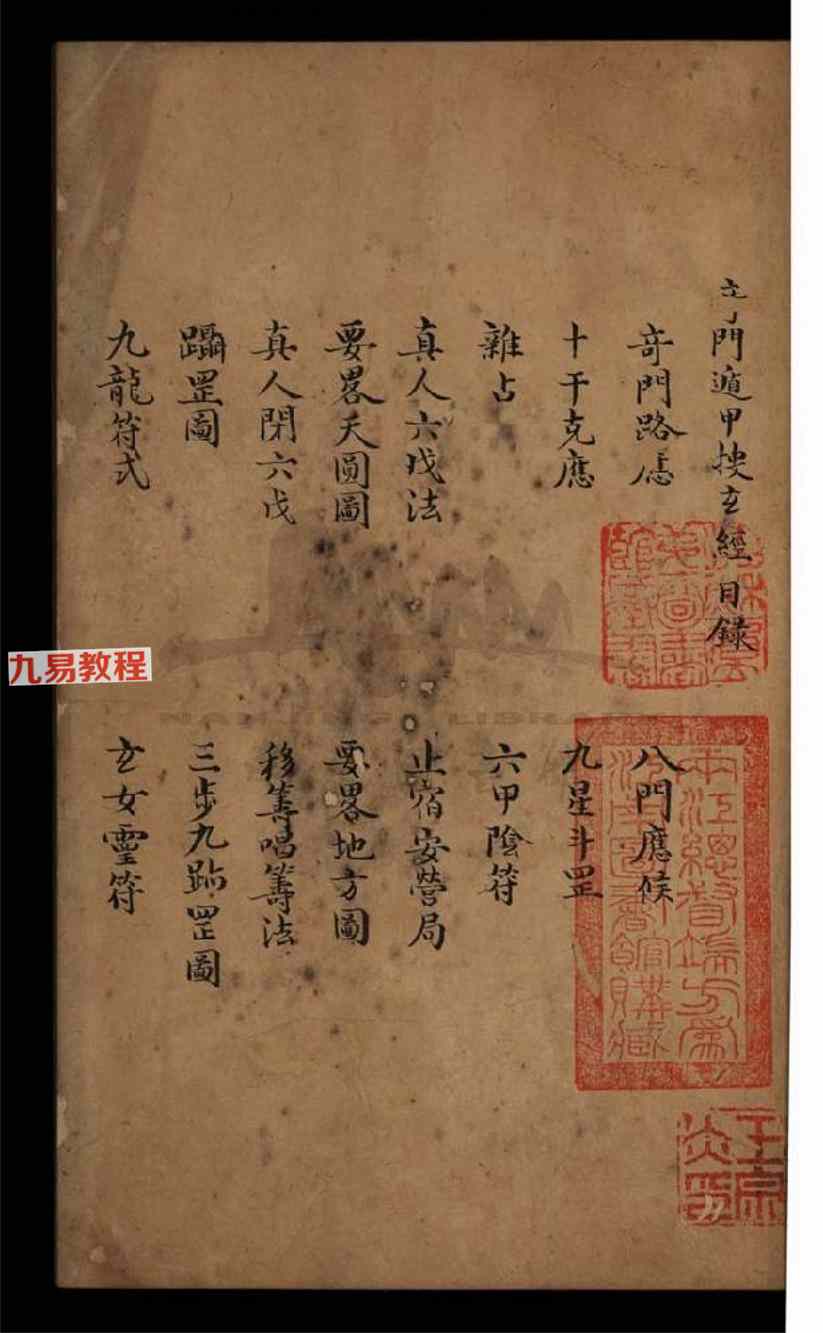 門遁甲按玄經目錄
奇門路
八門應候
十干克應
九星斗罡
雜占
六甲陰符
真人六戊法
止宿安營局
要畧天圓圖
要畧地方圖
真人閉六戊
移籌唱籌法
躡罡圖
三步九跡罡圖
九龍符式
玄女靈符
兩江總督端方為
圖書館購藏
九易教程
NANJING LIBRARY